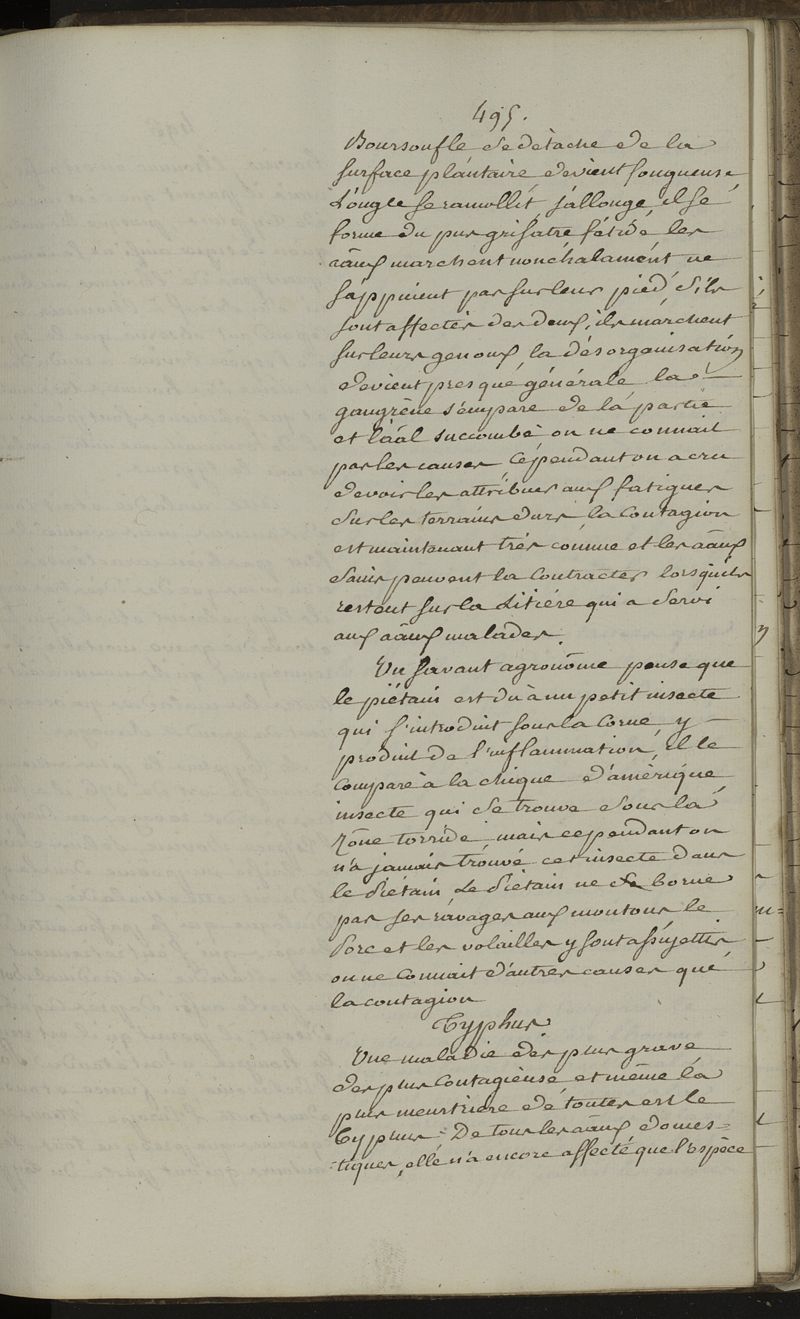 495.
Boursoufle se détache de la
surface plantaire devient fongueuse
L'ongle se ramollit s'allonge, il se
forme du pus grisâtre fétide, les
aâux marchent nonchalament ne
s'appuient pas sur leur pied, s'ils
sont affectés des deux, ils marchent
sur leurs genoux, la désorganisation
devient presque générale, la
gangrène s'empare de la partie
et l'aâl succombe on ne connait
pas les causes Cependant on a cru
devoir les attribuer aux fatigues
sur les terrains durs, la Contagion
est maintenant très connue et les aâux
sains peuvent la Contracter lorsqu'ils
restent sur la Litiére qui a servi
aux aâux malades.
Un savant agronôme pense que
le piétain est du à un petit insecte
qui s'introduit sous la Corne, y
produit de l'inflammation, Il le
Compare à la chique d'amérique
insecte qui se trouve sous la
Zône torride, mais cependant on
n'a jamais trouvé cet insecte dans
le Piétain Le Piétain ne se borne
pas ses ravages aux moutons le
Porc et les volailles y sont assujettis
on ne Connait d'autres causes que
la contagion
Typhus
Une maladie des plus grave
des plus Contagieuse et même la
plus meurtriere de toutes est le
Typhus. De tous les aâux domes=
=tiques, elle n'a encore affecté que l'espèce